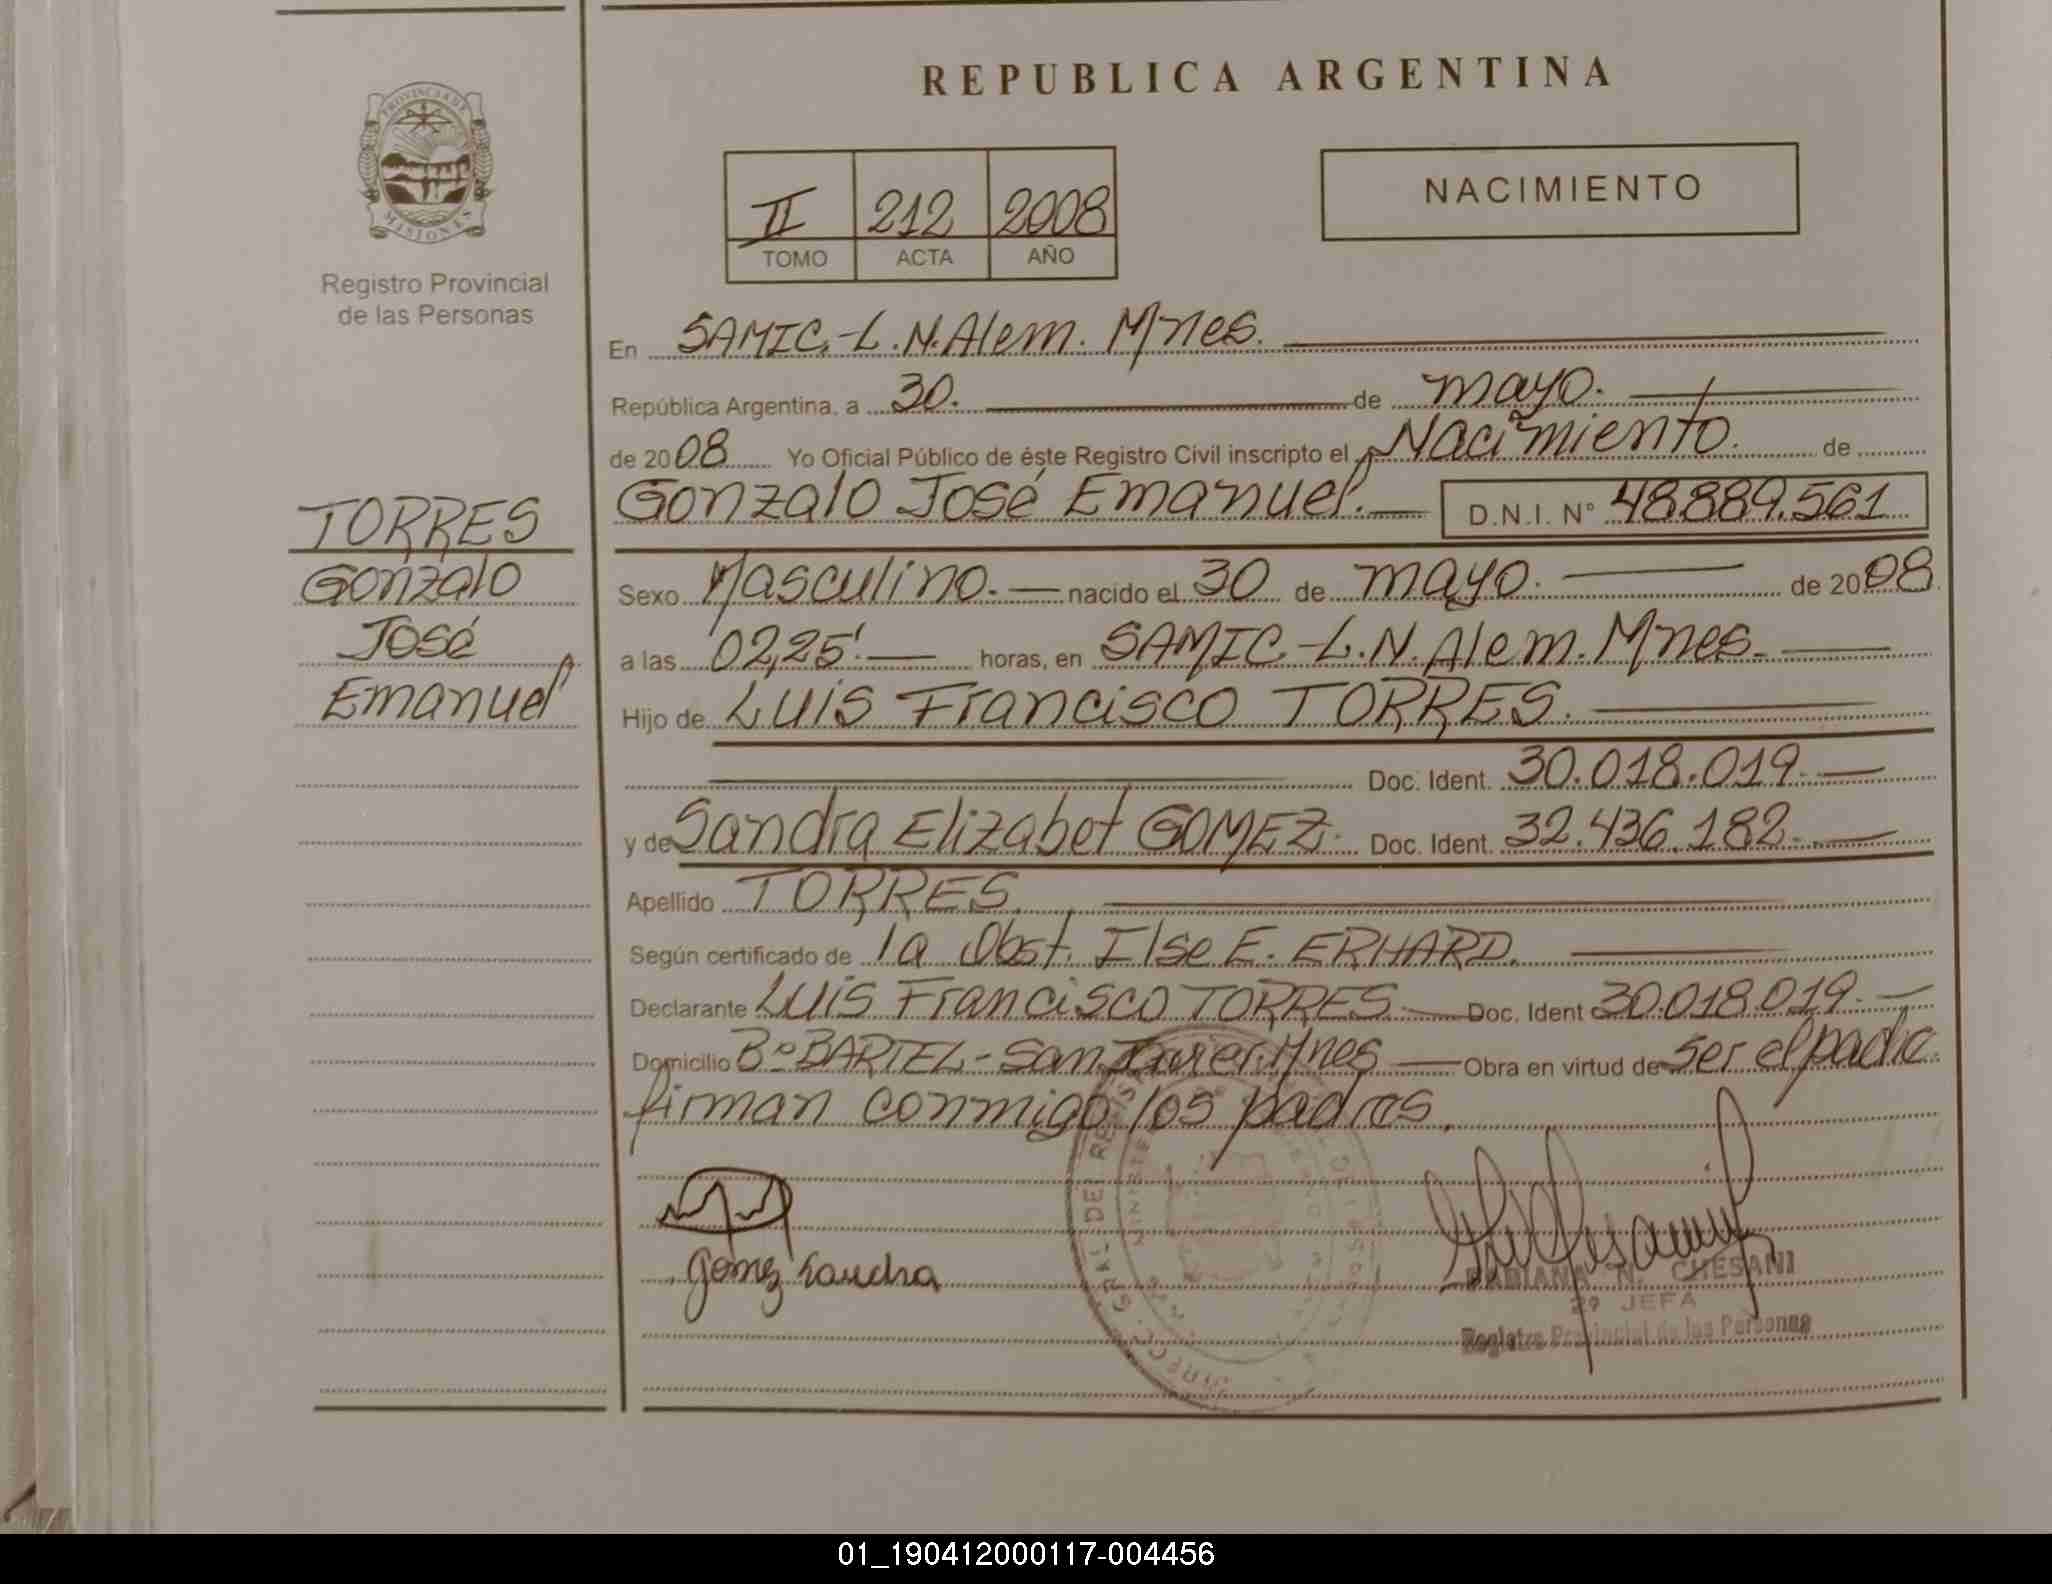 REPUBLICA ARGENTINA
PROVINCIA DE
MISIONES
Registro Provincial
de las Personas
II 212 2008
TOMO ACTA AÑO
NACIMIENTO
En SAMIC.-L.N.Alem. Mnes.
República Argentina, a 30. de mayo.
de 2008 Yo Oficial Público de éste Registro Civil inscripto el Nacimiento. de
Gonzalo José Emanuel. D.N.I. N° 48.889.561
TORRES
Gonzalo
José
Emanuel
Sexo Masculino. nacido el 30 de mayo. de 2008.
a las 02,25'. horas, en SAMIC.-L.N.Alem. Mnes.
Hijo de Luis Francisco TORRES.
Doc. Ident. 30.018.019.
y de Sandra Elizabet GOMEZ. Doc. Ident. 32.436.182.
Apellido TORRES.
Según certificado de la Obst. Ilse E. ERHARD.
Declarante Luis Francisco TORRES. Doc. Ident 30.018.019.
Domicilio B° BARTEL-San Javier.Mnes Obra en virtud de ser el padre.
firman conmigo los padres.
Gomez Sandra
FABIANA N. CHESANI
2ª JEFA
Registro Provincial de las Personas
01_190412000117-004456